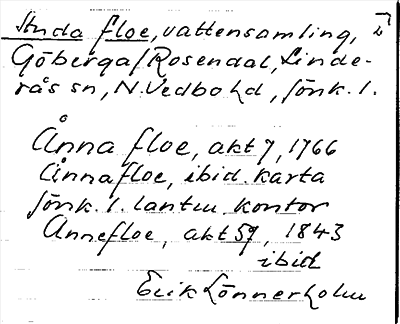 Studa floe, vattensamling,
Göberga/Rosendal, Linde-
rås sn, N. Vedbo hd, Jönk. l.
Ånna floe, akt 7, 1766
Ånnafloe, ibid. karta
Jönk. l. lantm. kontor
Annefloe, akt 59, 1843
ibid
Erik Lönnerholm